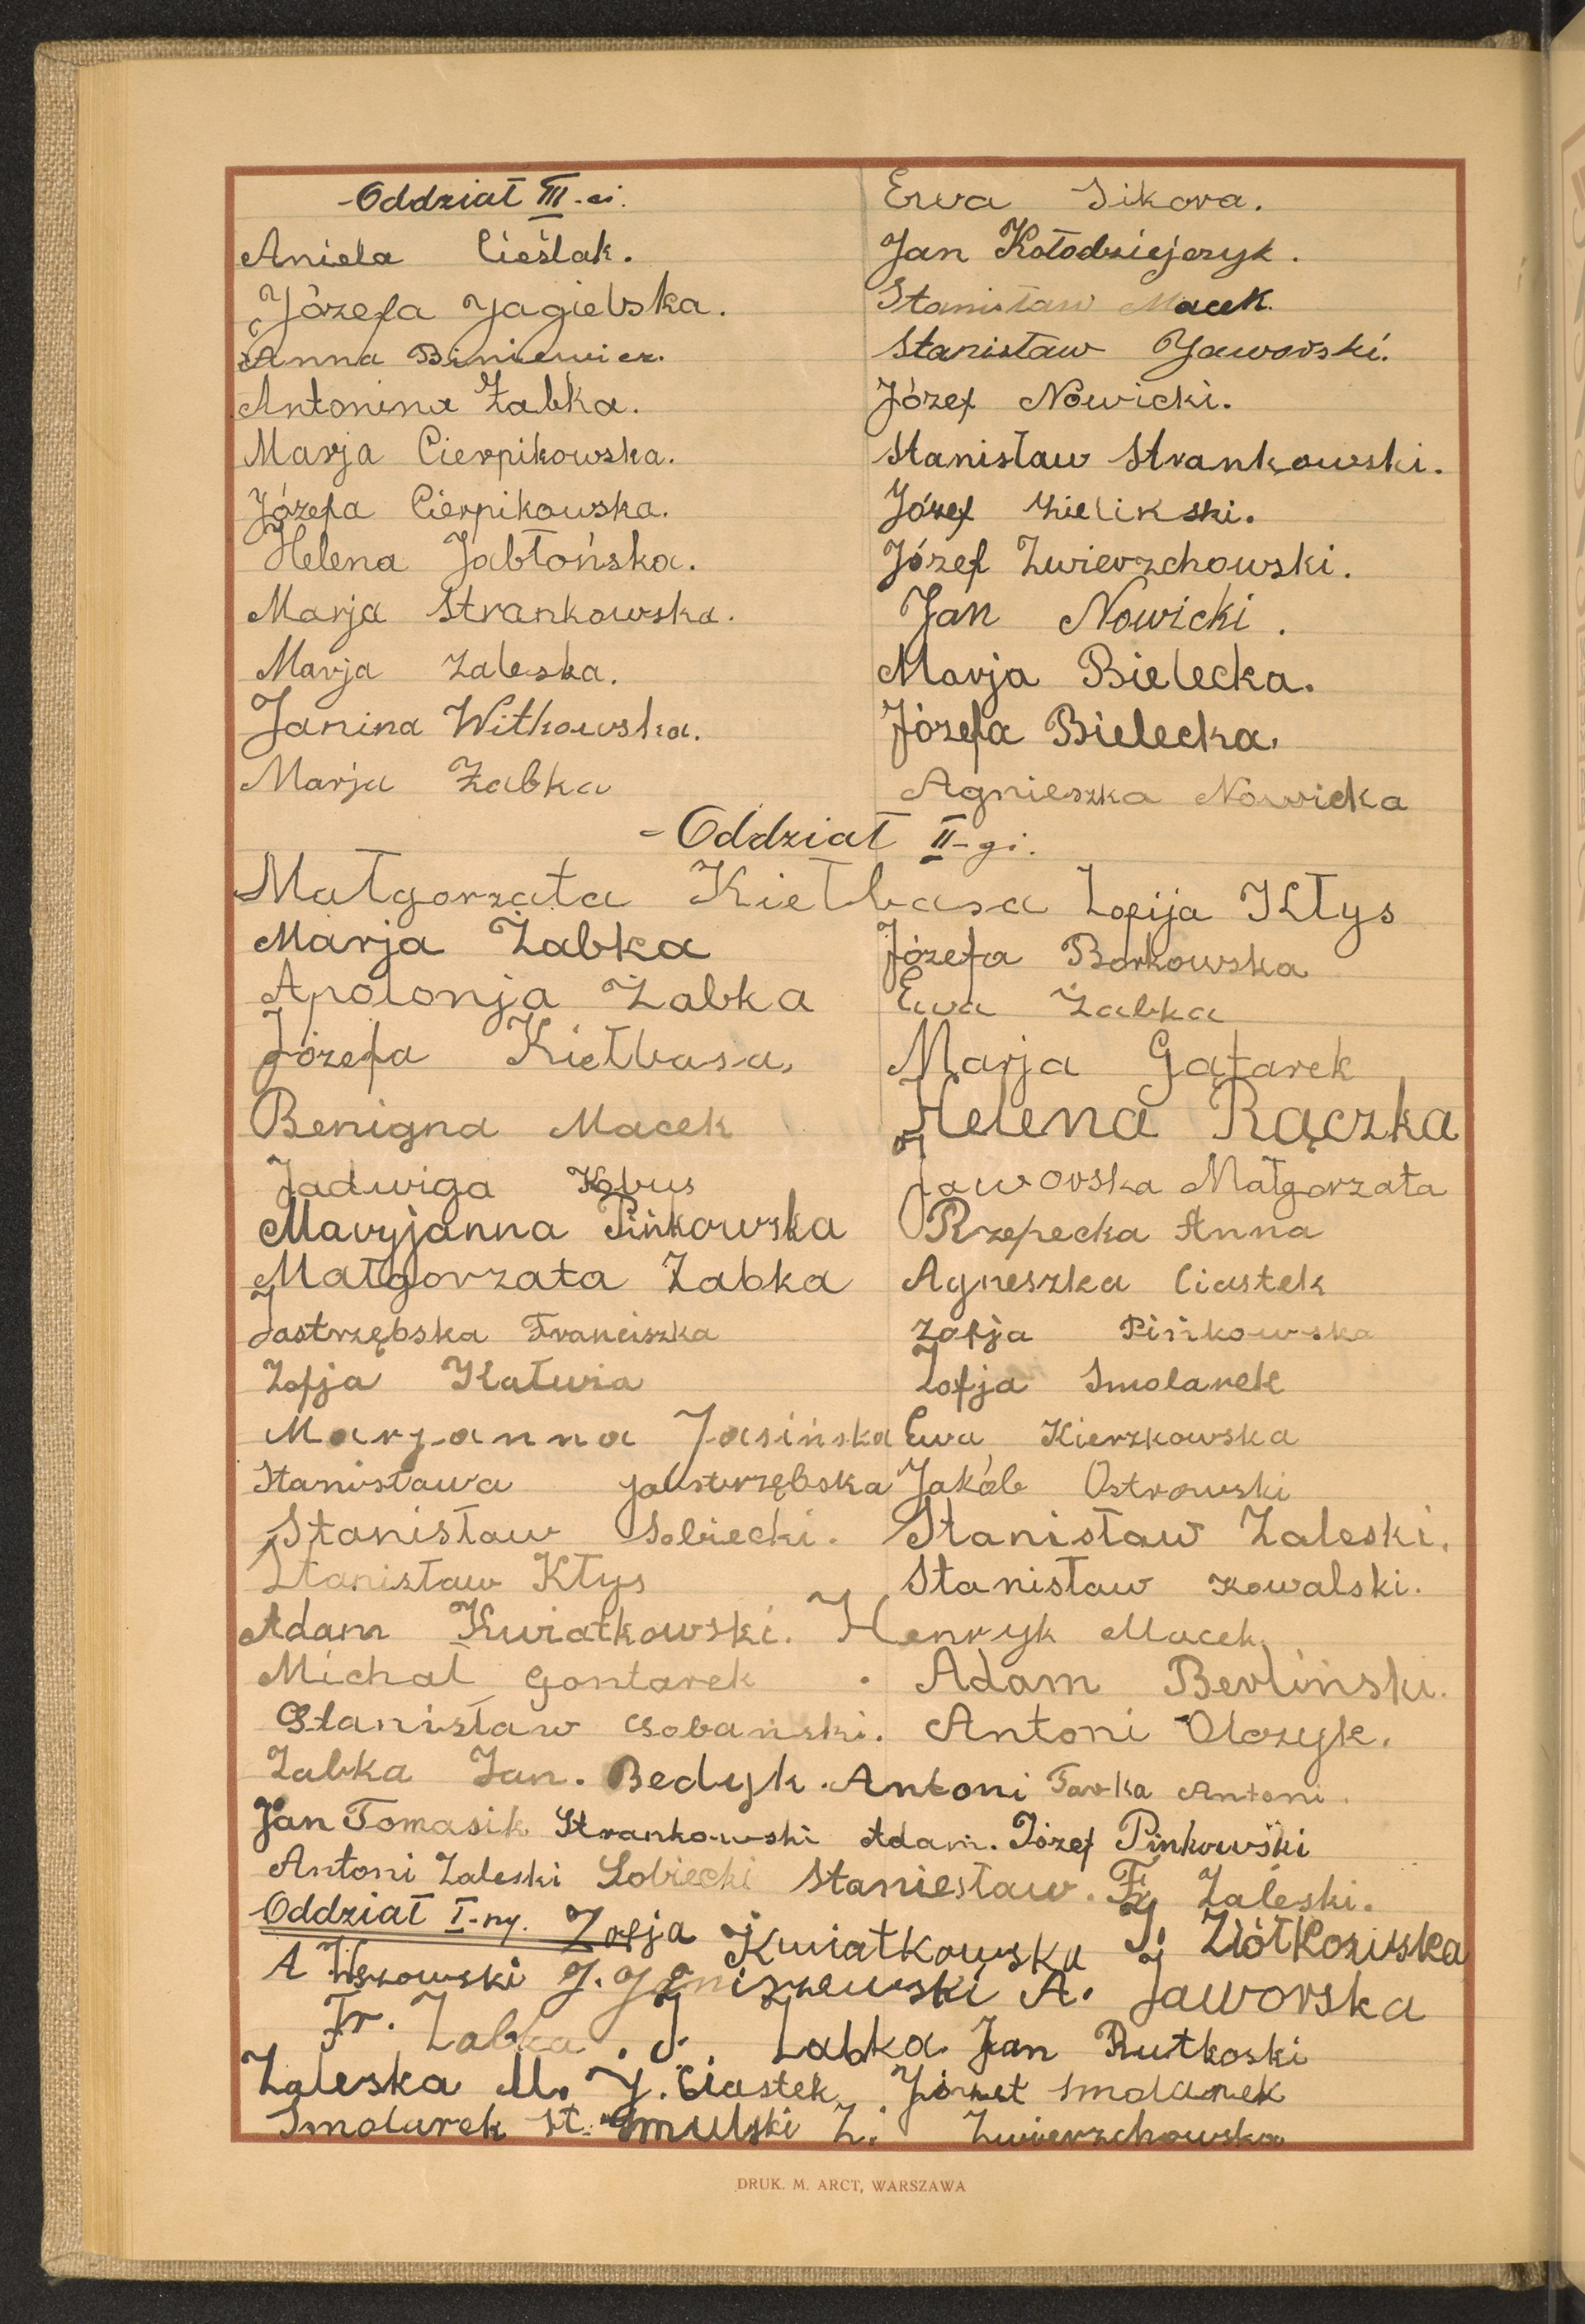 Oddział III-ci.
Aniela Cieślak.
Józefa Jagielska.
Anna Biniewicz.
Antonina Żabka.
Marja Cierpikowska.
Józefa Cierpikowska.
Helena Jabłońska.
Marja Strankowska.
Marja Zaleska.
Janina Witkowska.
Marja Żabka
Ewa Sikora.
Jan Kołodziejczyk.
Stanisław Macek.
Stanisław Jaworski.
Józef Nowicki.
Stanisław Strankowski.
Józef Zielikski.
Józef Zwierzchowski.
Jan Nowicki.
Marja Bielecka.
Józefa Bielecka.
Agnieszka Nowicka
Oddział II-gi.
Małgorzata Kiełbasa
Marja Żabka
Apolonja Żabka
Józefa Kiełbasa,
Benigna Macek
Jadwiga Kobus
Maryjanna Pińkowska
Małgorzata Żabka
Jastrzębska Franciszka
Zofja Katuria
Marjanna Jasińska
Stanisława Jastrzębska
Stanisław Sobiecki.
Stanisław Kłys
Adam Kwiatkowski.
Michał Gontarek
Stanisław Sobański.
Zofija Kłys
Józefa Borkowska
Ewa Żabka
Marja Gątarek
Helena Rączka
Jaworska Małgorzata
Rzepecka Anna
Agneszka Ciastek
Zofja Pińkowska
Zofja Smolarek
Ewa Kierzkowska
Jakób Ostrowski
Stanisław Zaleski.
Stanisław Kowalski.
Henryk Macek.
Adam Berliński.
Antoni Olczyk.
Żabka Jan. Bedyk. Antoni Tarka Antoni.
Jan Tomasik Strankowski Adam. Józef Pinkowski
Antoni Zaleski Sobiecki Staniesław. Fr Zaleski.
Oddział I-ny. Zofja Kwiatkowska J. Ziółkoswska
A J. Janiszewski A. Jaworska
Fr. Żabka. J. Żabka Jan Rutkoski
Zaleska M. J. Ciastek, Józwet Smolarek
Smolarek St. Smulski Z. Zwierzchowska
DRUK. M. ARCT, WARSZAWA